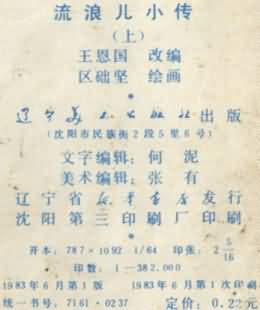 流浪儿小传
（上）
王恩国 改编
区础坚 绘画
辽宁美术出版社出版
（沈阳市民族街2段5里6号）
文字编辑：何 泥
美术编辑：张 有
辽宁省新华书店发行
沈阳第三印刷厂印刷
开本：787×1092 1/64 印张：2 5/16
印数：1—382,000
1983年6月第1版 1983年6月第1次印刷
统一书号：7161·0237 定价：0.22元